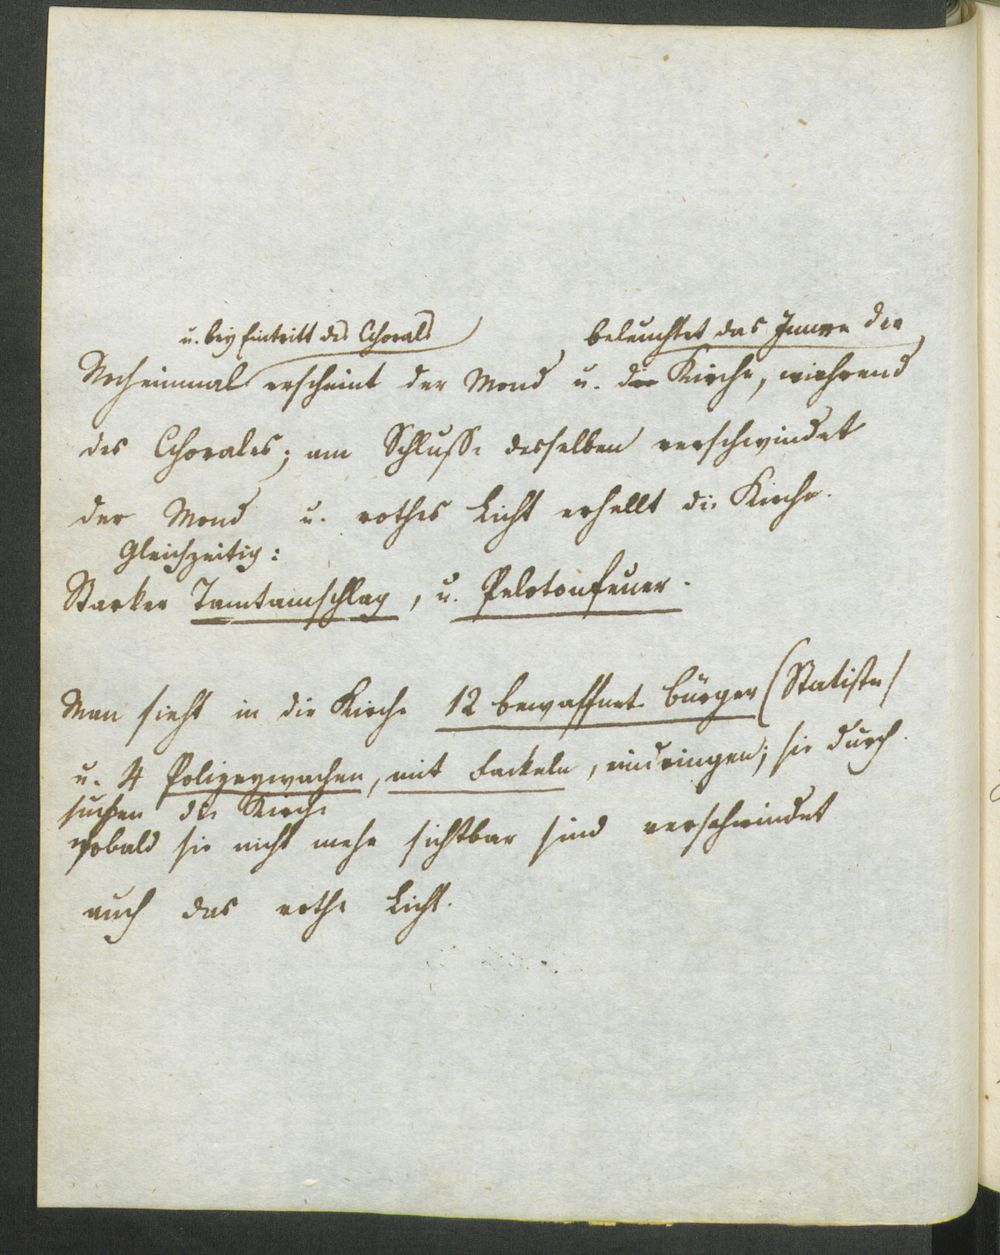 u. bey Eintritt des Chorals
beleuchtet das Innere der
Nocheinmal erscheint der Mond u. der Kirche, während
des Chorales; am Schlusse desselben verschwindet
der Mond u. rothes Licht erhellt die Kirche.
Gleichzeitig:
Starker Tamtamschlag, u. Pelotonfeuer.
Man sieht in die Kirche 12 bewaffnete Bürger (Statisten)
u. 4 Polizeywachen, mit Fackeln, eindringen; sie durch
suchen die Kirche
sobald sie nicht mehr sichtbar sind verschwindet
auch das rothe Licht.